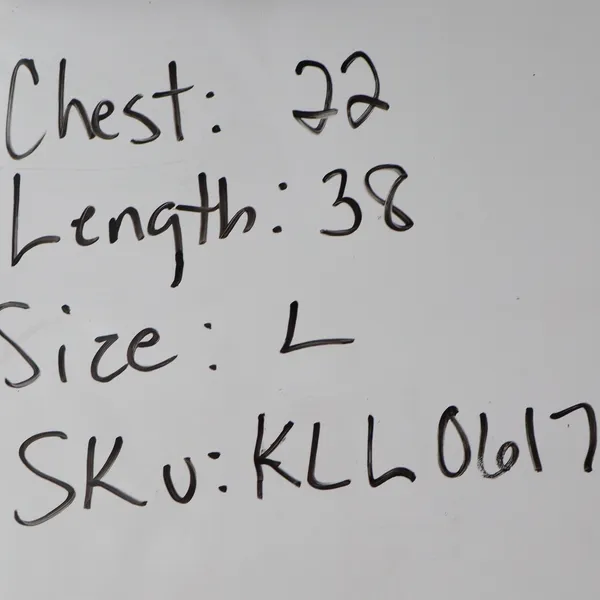 Chest: 22
Length: 38
Size: L
SKU: KLL0617